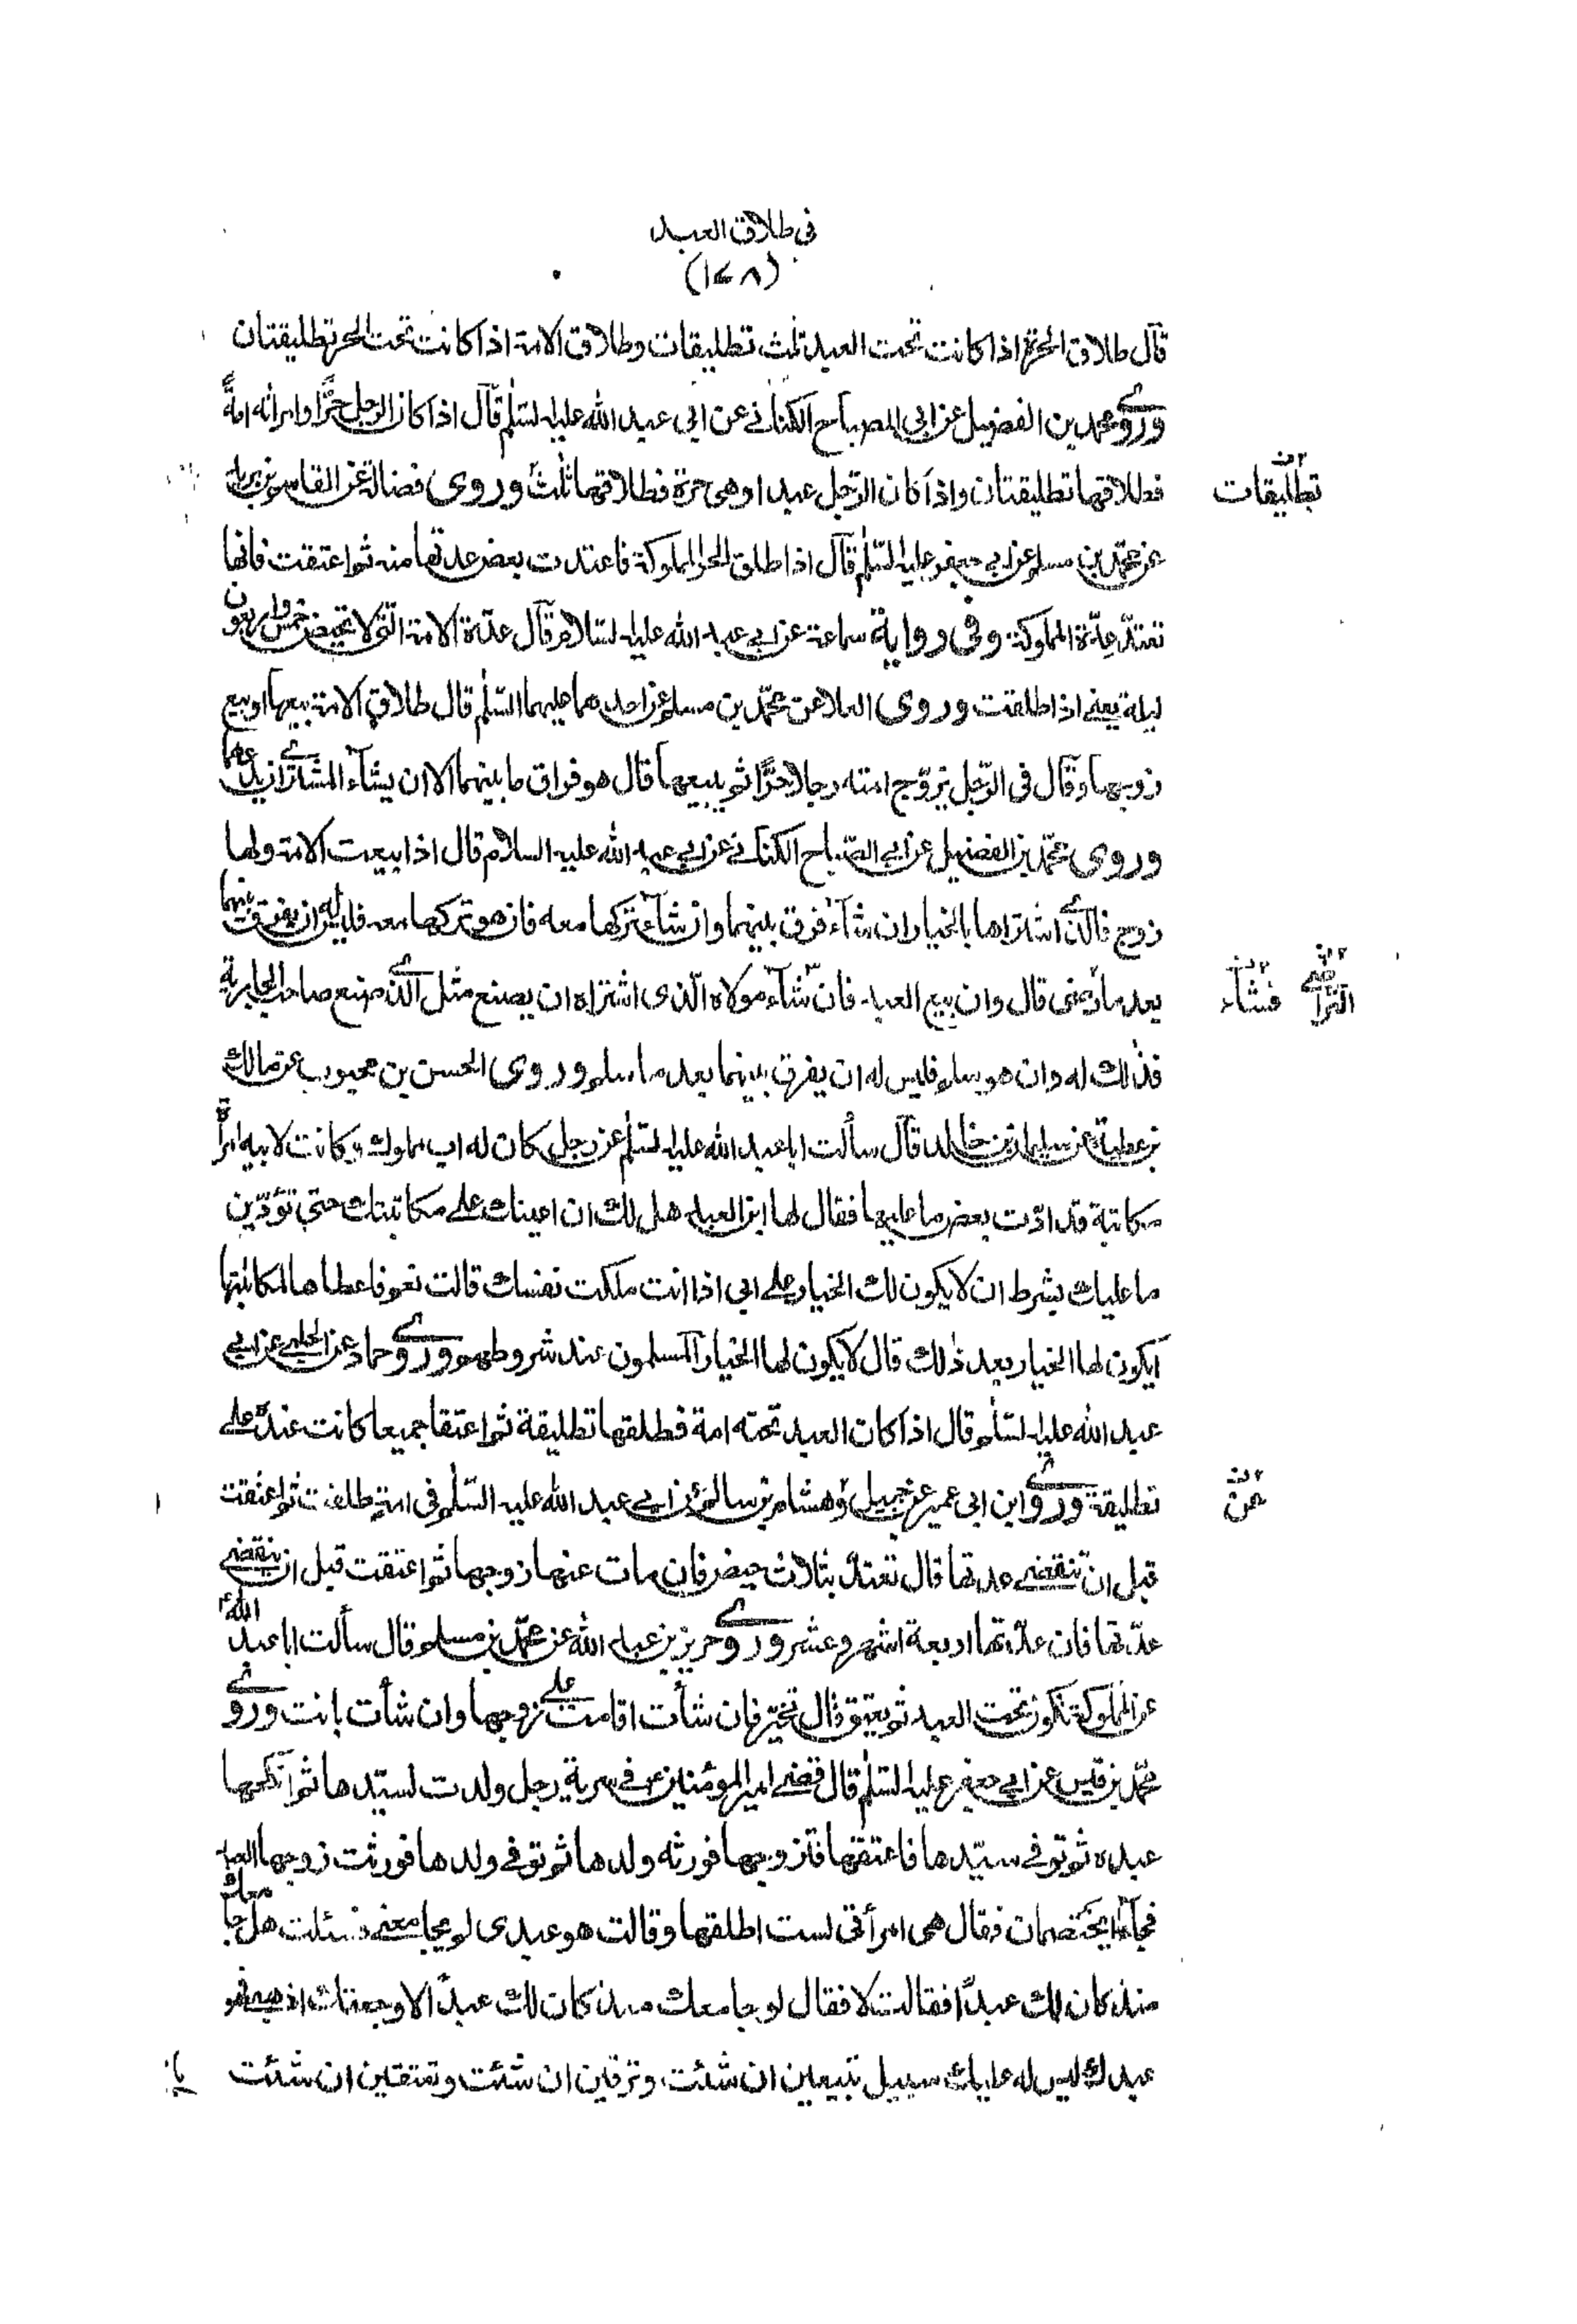 في طلاق العبد
(١٤٨)
قال طلاق الحرة اذا كانت تحت العبد ثلث تطليقات وطلاق الامة اذا كانت تحت الحر تطليقتان
وروى محمد بن الفضيل عن ابي الصباح الكناني عن ابي عبد الله عليه السلم قال اذا كان الرجل حرًّا وامراته امةً
فطلاقها تطليقتان واذا كان الرجل عبدا وهي حرة فطلاقها ثلث وروى فضالة عن القاسم بن بريد
تطليقات
عن محمد بن مسلم عن ابي جعفر عليه السلم قال اذا طلق الحر المملوكة فاعتدت بعض عدتها منه ثم اعتقت فانها
تعتدّ عدّة المملوكة وفي رواية سماعة عن ابي عبد الله عليه السلام قال عدّة الامة التي لا تحيض خمس واربعون
ليلة يعني اذا طلقت وروى العلا عن محمّد بن مسلم عن احدهما عليهما السّلم قال طلاق الامة بيعها او بيع
زوجها وقال في الرّجل يزوّج امته رجلا حرًّا ثم يبيعها قال هو فراق ما بينهما الا ان يشاء المشتري ان يدعهما
وروى محمّد بن الفضيل عن ابي الصّباح الكناني عن ابي عبد الله عليه السلام قال اذا بيعت الامة ولها
زوج فالذي اشتراها بالخيار ان شاء فرق بينهما وان شاء تركها معه فان هو تركها معه فليس له ان يفرق بينهما
بعد ما رضي قال وان بيع العبد فان شاء مولاه الّذى اشتراه ان يصنع مثل الذي صنع صاحب الجارية
التراضي فشاء
فذلك له وان هو سلم فليس له ان يفرق بينهما بعد ما سلم وروى الحسن بن محبوب عن مالك
بن عطية عن سليمان بن خالد قال سألت ابا عبد الله عليه السلم عن رجل كان له اب مملوك وكانت لابيه امرأة
مكاتبة قد ادّت بعض ما عليها فقال لها ابن العبد هل لك ان اعينك على مكاتبتك حتى تؤدّين
ما عليك بشرط ان لا يكون لك الخيار على ابي اذا انت ملكت نفسك قالت نعم فاعطاها لمكاتبتها
ايكون لها الخيار بعد ذلك قال لا يكون لها الخيار المسلمون عند شروطهم وروى حماد عن الحلبي عن ابي
عبد الله عليه السلم قال اذا كان العبد تحته امة فطلقها تطليقة ثم اعتقا جميعا كانت عنده على
تطليقة وروى ابن ابي عمير عن جميل وهشام بن سالم عن ابي عبد الله عليه السّلم في امة طلقت ثم اعتقت
عن
قبل ان تنقضي عدتها قال تعتدّ بثلاث حيض فان مات عنها زوجها ثم اعتقت قبل ان تنقضي
عدّتها فان عدّتها اربعة اشهر وعشر وروى حريز بن عبد الله عن محمّد بن مسلم قال سألت ابا عبد الله ع
عن المملوكة تكون تحت العبد ثم يعتق قال تخيّر فان شأت اقامت على زوجها وان شأت بانت وروى
محمّد بن قيس عن ابي جعفر عليه السّلم قال قضى امير المؤمنين ع في سرية رجل ولدت لسيّدها ثم انكحها
عبده ثم توفي سيّدها فاعتقها فتزوجها فورثه ولدها ثم توفي ولدها فورثت زوجها العبد
فجاءا يختصمان فقال هي امرأتي لست اطلقها وقالت هو عبدى لم يجامعني فسئلت هل جامعك
منذ كان لك عبدًا فقالت لا فقال لو جامعك منذ كان لك عبدًا لاوجعتك اذهبي فهو
عبدك ليس له عليك سبيل تبيعين ان شئت وترقين ان شئت وتعتقين ان شئت